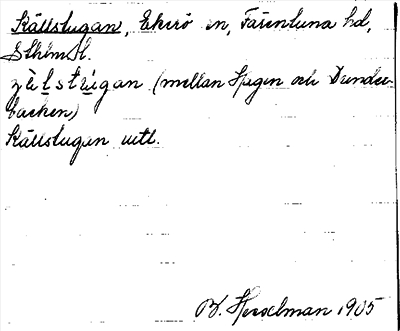 Källstugan, Ekerö sn, Färentuna hd,
Sthlms l.
(mellan Hagen och Dunder-
backen)
Källstugan uttl.
B. Hesselman 1905